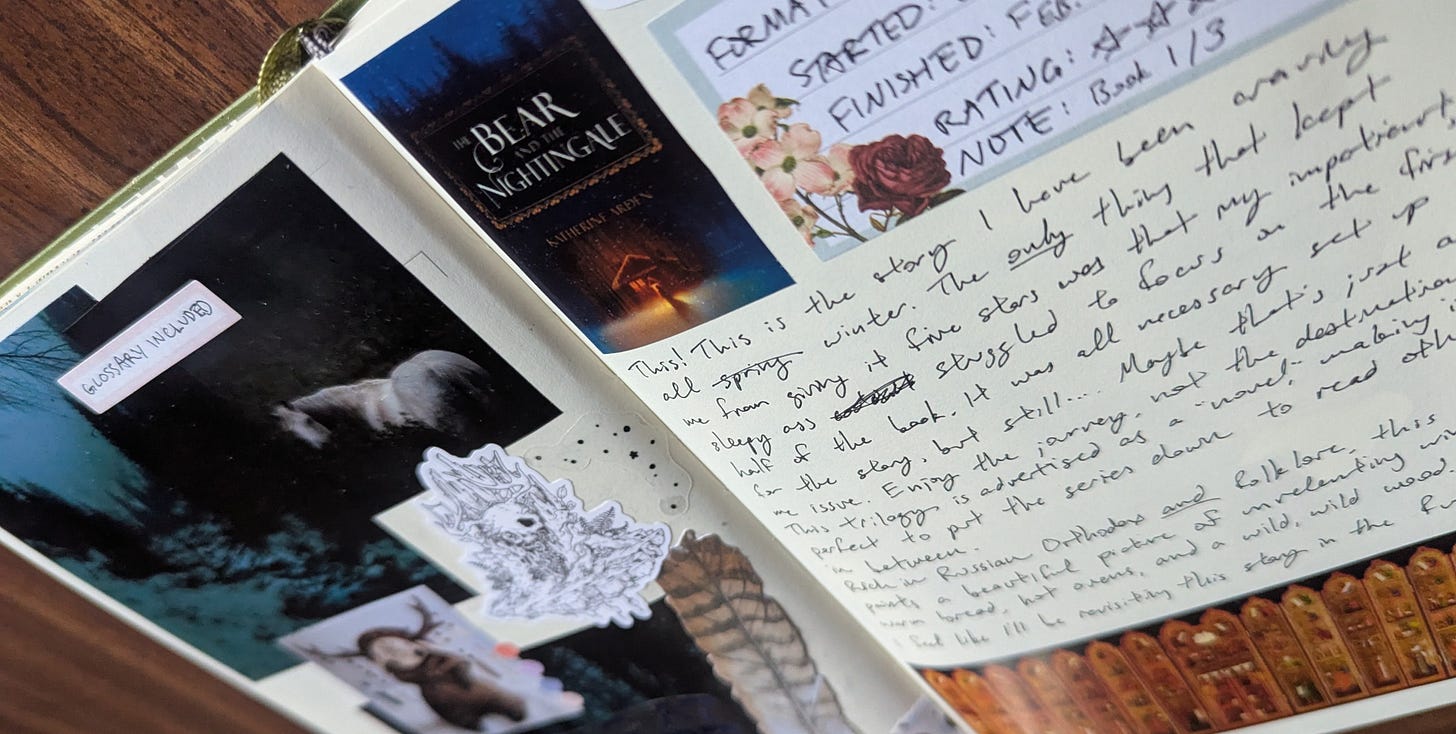 GLOSSARY INCLUDED
THE
BEAR
AND THE
NIGHTINGALE
KATHERINE ARDEN
FORMAT
STARTED:
FINISHED: FEB.
RATING: ☆☆
NOTE: Book 1/3
This! This is the story I have been craving
all spring winter. The only thing that kept
me from giving it five stars was that my impatient,
sleepy ass struggled to focus on the first
half of the book. It was all necessary set up
for the story, but still... Maybe that's just a
me issue. Enjoy the journey, not the destination
This trilogy is advertised as a "novel," making it
perfect to put the series down to read oth
in between.
Rich in Russian Orthodox and folklore, this
paints a beautiful picture of unrelenting win
warm bread, hot ovens, and a wild, wild wood.
I feel like I'll be revisiting this story in the fu